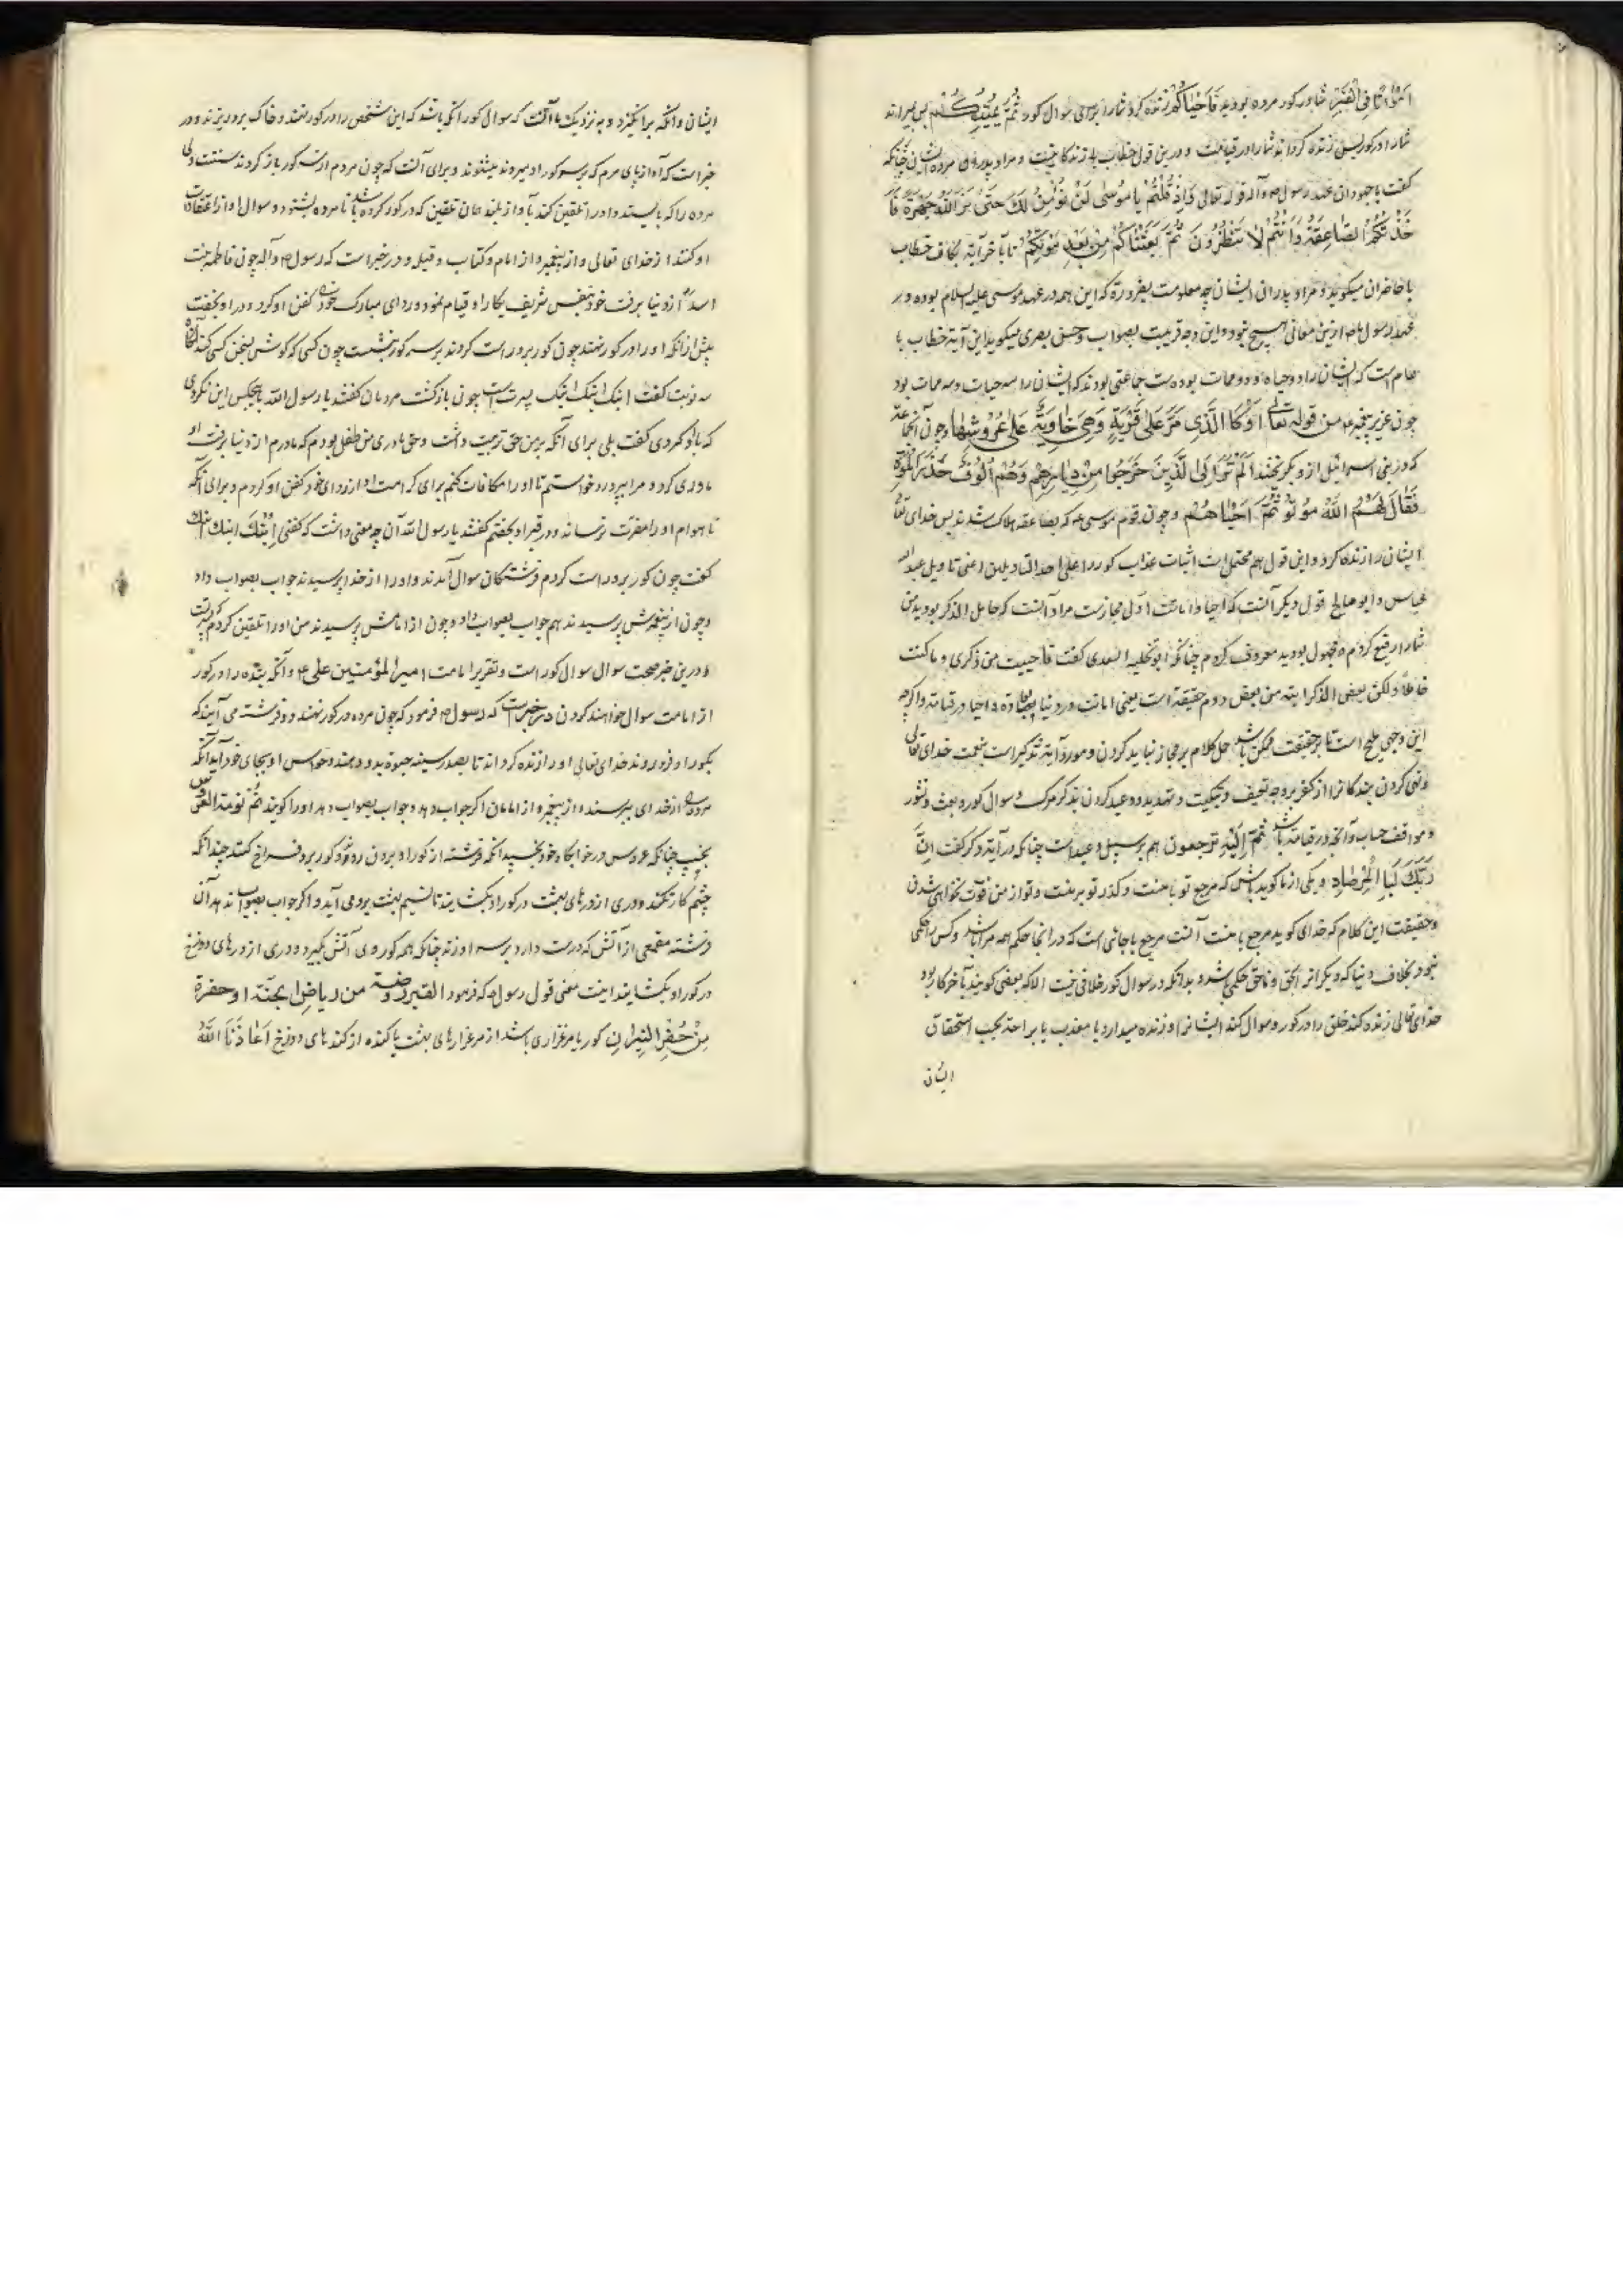 امواتا فی القبر شما در کور مرده بودید فاحیاکم زنده کرد شما را برای سوال کور ثم یمیتکم پس بمیراند
شما را در کور پس زنده کرداند شما را در قیامت و درین قول خطاب با زندکانیست و مراد پدران مرده ایشان چنانکه
کفت با جهودان عهد رسول ص و آله قوله تعالی و اذ قلتم یا موسی لن نؤمن لک حتی نر الله جهرة فا
خذتکم الصاعقة و انتم لا تنظرون ثم بعثناکم من بعد موتکم تا بآخر آیة بکاف خطاب
با حاضران میکوید و مراد پدران ایشان چه معلومست بضرورة که این همه در عهد موسی علیه السلام بوده و در
عهد رسول ما ازین معانی هیچ نبود و این وجه قریبست بصواب و حسن بصری میکوید این آیة خطاب با
عام است که ایشان را دو حیاة و دو ممات بوده است جماعتی بودند که ایشان را سه حیات و سه ممات بود
چون عزیر پیغمبر ع من قوله تعالی او کا الذی مر علی قریة و هی خاویة علی عروشها و چون آنجماعة
که در بنی اسرائیل از وبا بکریختند الم تر الی الذین خرجوا من دیارهم و هم الوف حذر الموت
فقال لهم الله موتوا ثم احیاهم و چون قوم موسی ع که بصاعقه هلاک شدند پس خدای تعا
ایشان را زنده کرد و این قول هم محتمل است اثبات عذاب کور را علی احد التاویلین اعنی تاویل عبدالله
عباس و ابو صالح قول دیکر آنست که احیا و اماتت اول مجازست مراد آنست که خامل الذکر بودید من
شما را رفیع کردم و مجهول بودید معروف کردم چنانکه ابو نخیله السعدی کفت فاحییت من ذکری و ما کنت
خاملا و لکن بعض الذکر انبه من بعض و دوم حقیقة است یعنی اماتت در دنیا و احیا در قیامة و اکرچه
این وجهی ملیح است تا بر حقیقت ممکن باشد حمل کلام بر مجاز نباید کردن و مورد آیة تذکیر است بنعمت خدای تعالی
و نهی کردن بندکان را از کفر بر وجه تخویف و تبکیت و تهدید و وعید کردن بذکر مرک و سوال کور و بعث و نشور
و مواقف حساب و آنچه در قیامة باشد ثم الیه ترجعون هم بر سبیل وعید است چنانکه در آیة دیکر کفت ان
ربک لبا المرصاد و یکی از ما کوید باش که مرجع تو با منست و کذر تو بر منست و تو از من فوت نخواهی شدن
و حقیقت این کلام که خدای کوید مرجع با منست آنست مرجع با جائی است که در آنجا حکم همه مرا باشد و کس را حکمی
نبود بخلاف دنیا که دیکران را بحق و ناحق حکمی باشد و بدانکه در سوال کور خلافی نیست الا که بعضی کویند بآخر کار بود
خدای تعالی زنده کند خلق را در کور و سوال کند ایشان را و زنده میدارد یا معذب یا براحت بحسب استحقاق
ایشان
ایشان و آنکه برانکیزد و به نزدیک ما آنست که سوال کور آنکه باشد که این شخص را در کور نهند و خاک برو ریزند و در
خبر است که آواز پای مردم که بر سر کور او میروند میشنوند و برای آنست که چون مردم از سر کور باز کردند سنتست ولی
مرده را که بایستد و او را تلقین کند بآواز بلند همان تلقین که در کور کرده باشد تا مرده بشنود و سوال او از اعتقادات
او کنند از خدای تعالی و از پیغمبر و از امام و کتاب و قبله و در خبر است که رسول ص و آله چون فاطمه بنت
اسد از دنیا برفت خود بنفس شریف بکار او قیام نمود و ردای مبارک خود کفن او کرد و در او بخفت
پیش ازانکه او را در کور نهند چون کور برو راست کردند بر سر کور بنشست چون کسی که کوش بسخن کسی کند آنکاه
سه نوبت کفت ابنک ابنک ابنک پسرت است چون بازکشت مردمان کفتند یا رسول الله با هیچکس این نکردی
که با او کردی کفت بلی برای آنکه بر من حق تربیت داشت و حق مادری من طفل بودم که مادرم از دنیا برفت او
مادری کرد و مرا بپرورد خواستم تا او را مکافات کنم برای کرامت او از ردای خود کفن او کردم و برای آنکه
تا هوام او را مضرت نرساند و در قبر او بخفتم کفتند یا رسول الله آن چه معنی داشت که کفتی ابنک ابنک ابنک
کفت چون کور برو راست کردم فرشتکان سوال آمدند و او را از خدا پرسیدند جواب بصواب داد
و چون از پیغمبرش پرسیدند هم جواب بصواب داد و چون از امامش پرسیدند من او را تلقین کردم که پسرت
و درین خبر صحت سوال سوال کور است و تقریر امامت امیر المؤمنین علی ع و آنکه بنده را در کور
از امامت سوال خواهند کردن در خبر است که رسول ص فرمود که چون مرده در کور نهند دو فرشته می آیند که
بکور او فرود روند خدای تعالی او را زنده کرداند تا بصدر سینه حیوة بدو دهند و حواس او بجای خود آید آنکه
مرده را از خدای بپرسند و از پیغمبر و از امامان اکر جواب دهد و جواب بصواب دهد او را کویند نم نومة العروس
بخسب چنانکه عروس در خوابکاه خود بخسپد آنکه فرشته از کور او بیرون روند و کور برو فراخ کنند چندانکه
چشم کار کند و دری از درهای بهشت در کور او بکشایند تا نسیم بهشت برو می آید و اکر جواب بصواب ندهد آن
فرشته مقمعی از آتش که در دست دارد بر سر او زند چنانکه همه کور وی آتش بکیرد و دری از درهای دوزخ
در کور او بکشایند اینست معنی قول رسول ص که فرمود القبر روضة من ریاض الجنة او حفرة
من حفر النیران کور یا مرغزاری باشد از مرغزارهای بهشت یا کنده از کندهای دوزخ اعاذنا الله